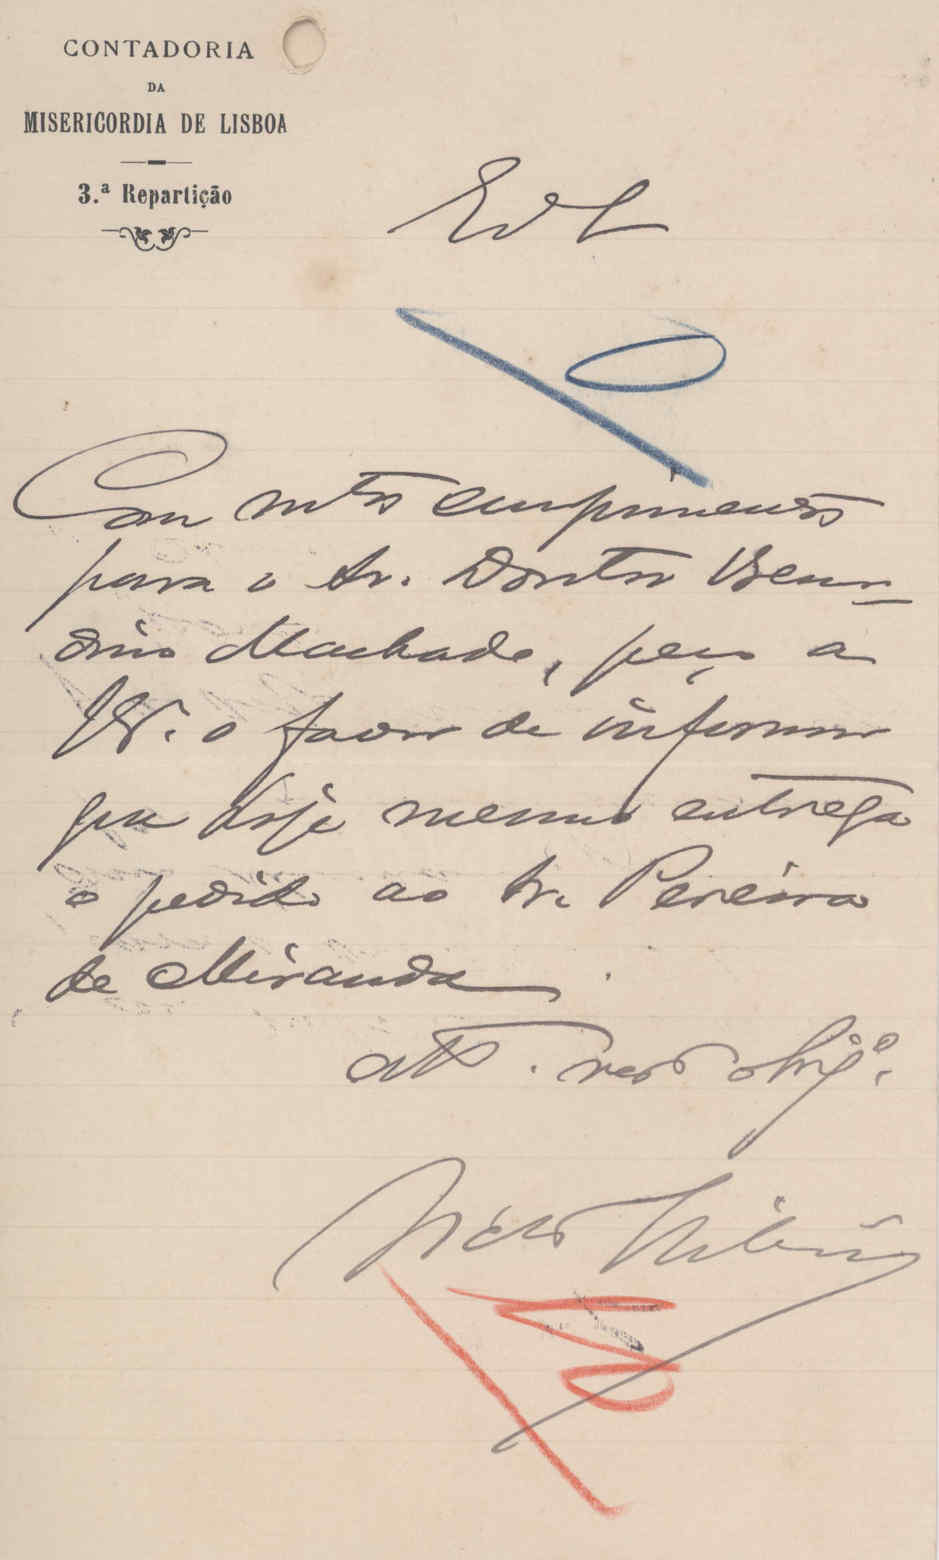 CONTADORIA
DA
MISERICORDIA DE LISBOA
3.ª Repartição
Com mtos cumprimentos
para o Sr. Doutor Bernar-
dino Machado, peço a
V. o favor de informar
que hoje mesmo entrega
o pedido ao Sr. Pereira
de Miranda.
atto. vor obrigº.